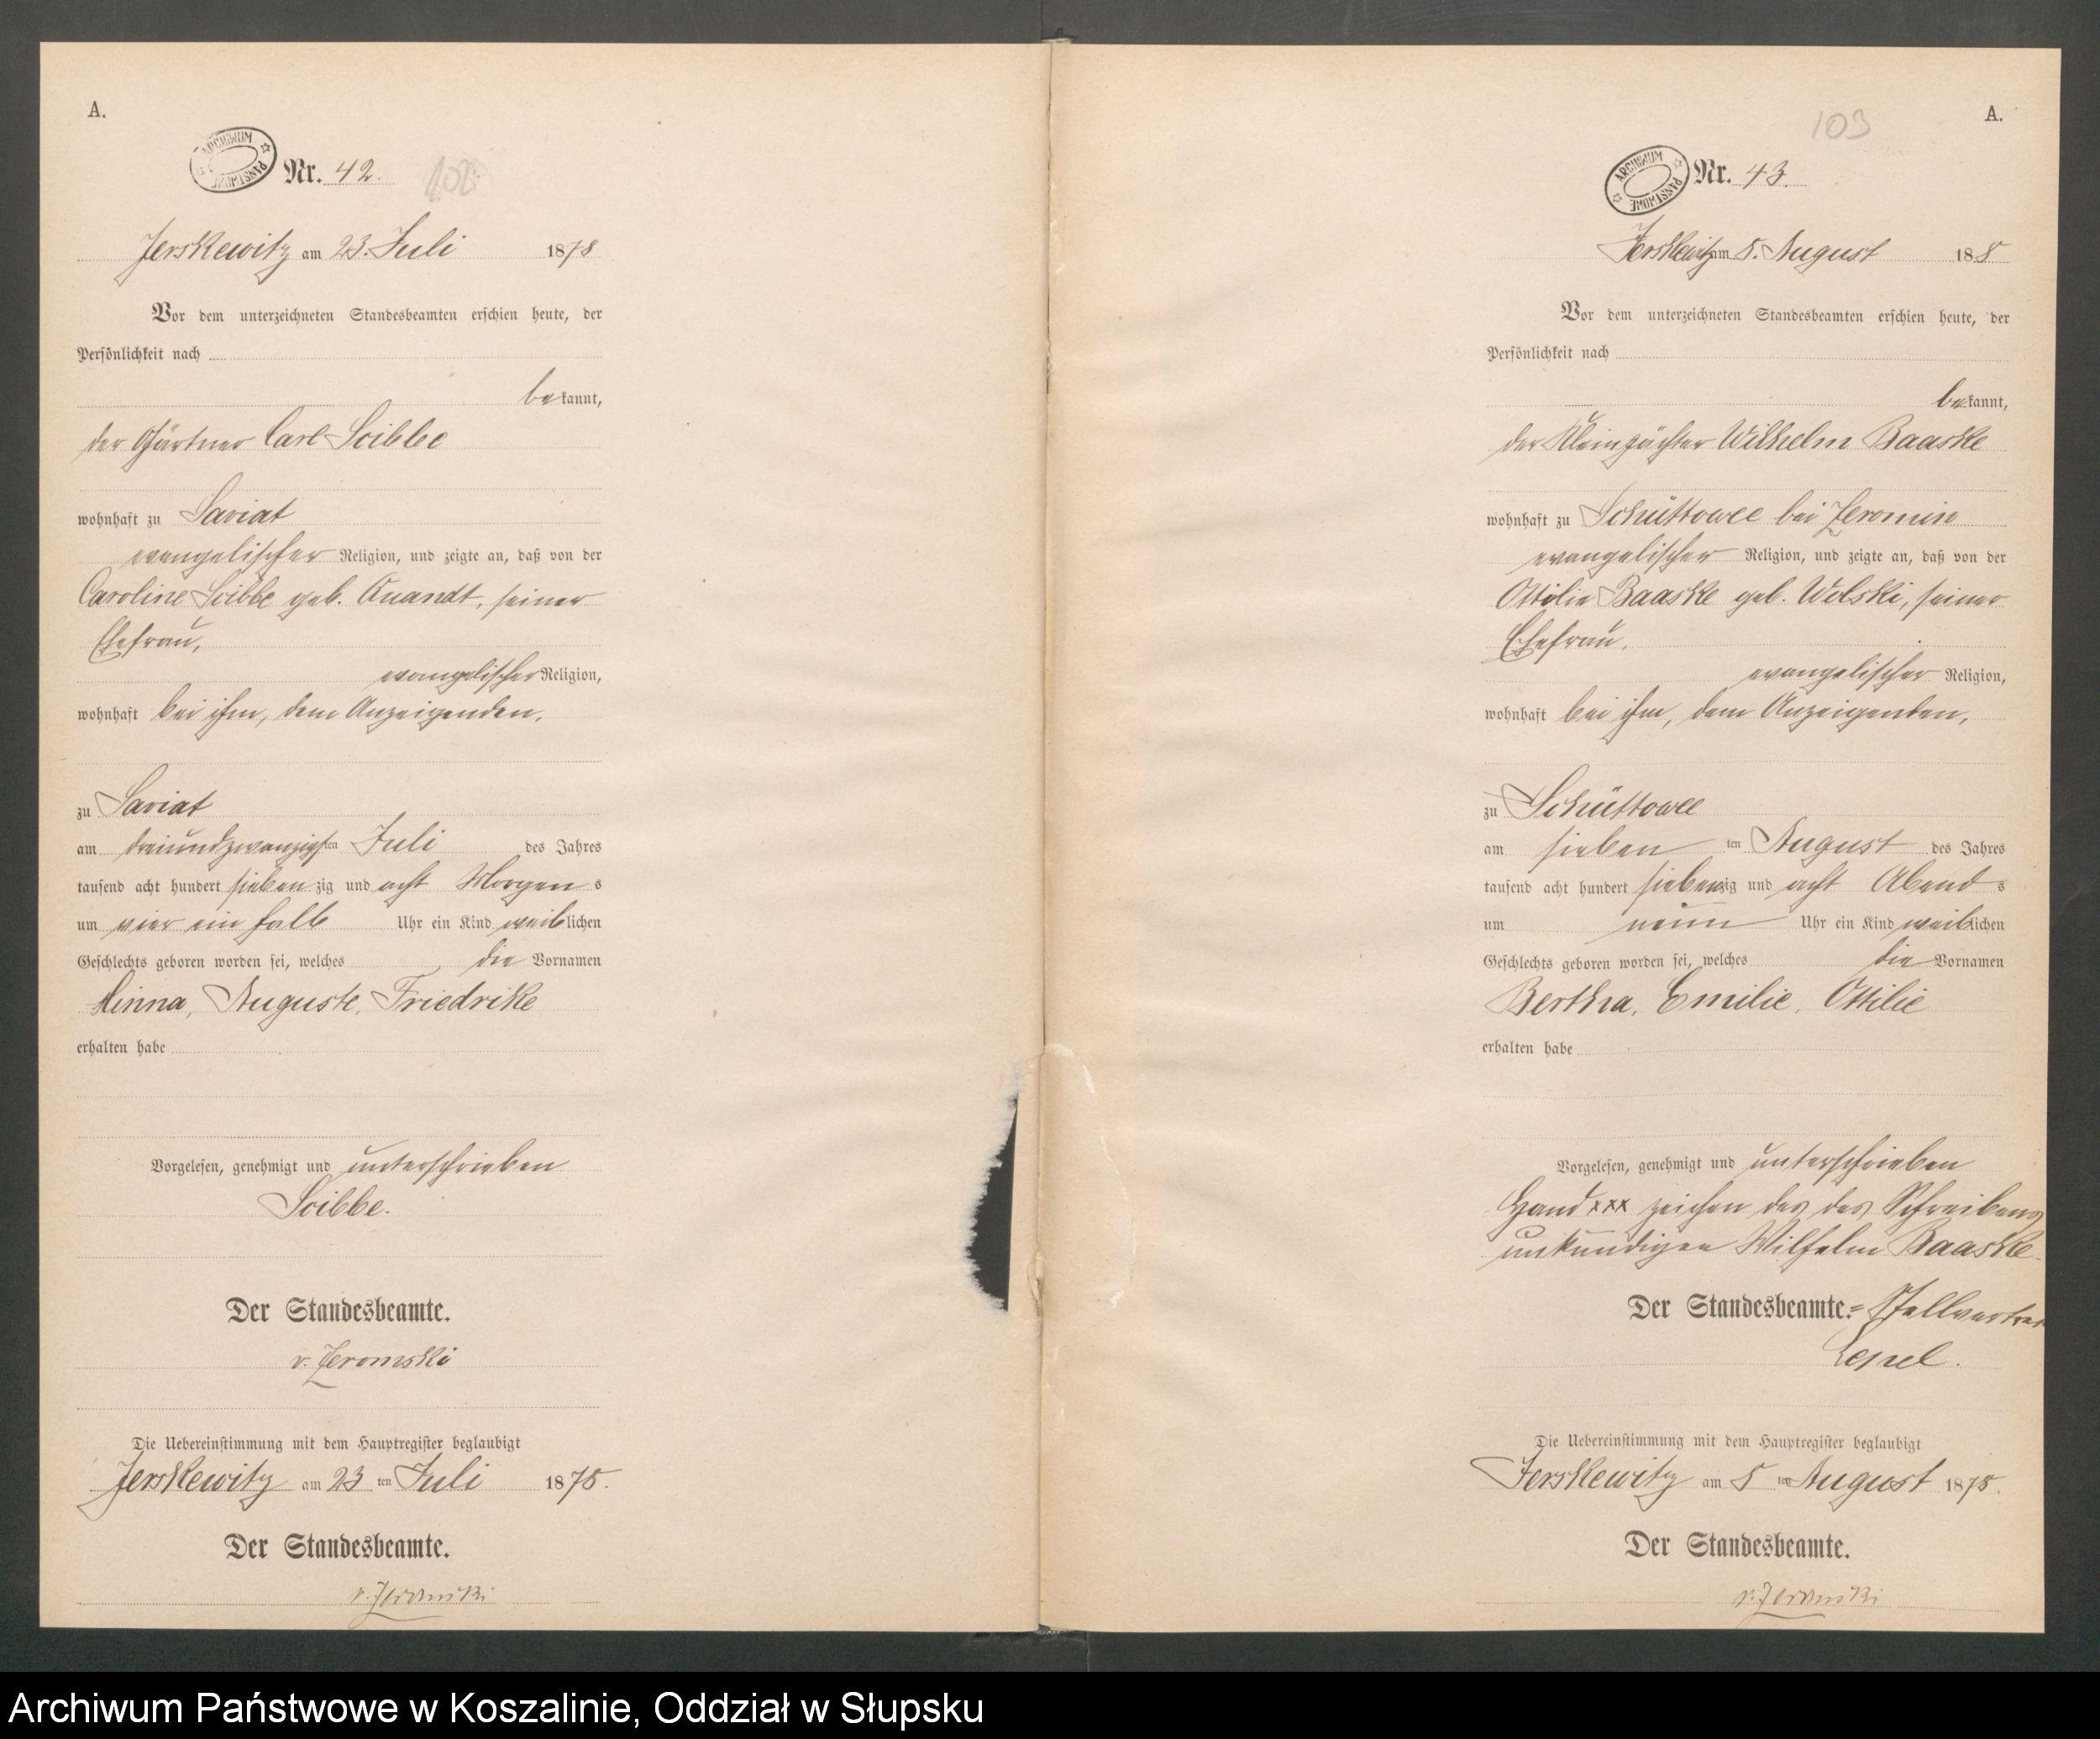 A.
ARCHIWUM PAŃSTWOWE
Nr. 42.
102
Jerskewitz am 23. Juli 1878
Vor dem unterzeichneten Standesbeamten erschien heute, der
Persönlichkeit nach
bekannt,
der Gärtner Carl Scibbe
wohnhaft zu Saviat
evangelischer Religion, und zeigte an, daß von der
Caroline Scibbe geb. Quandt, seiner
Ehefrau,
evangelischer Religion,
wohnhaft bei ihm, dem Anzeigenden,
zu Saviat
am dreiundzwanzigsten Juli des Jahres
tausend acht hundert siebenzig und acht Morgens
um vier ein halb Uhr ein Kind weiblichen
Geschlechts geboren worden sei, welches die Vornamen
Minna, Auguste, Friedrike
erhalten habe
Vorgelesen, genehmigt und unterschrieben
Scibbe.
Der Standesbeamte.
v. Jeromski
Die Uebereinstimmung mit dem Hauptregister beglaubigt
Jerskewitz am 23 ten Juli 1878.
Der Standesbeamte.
v. Jeromski
103
A.
ARCHIWUM PAŃSTWOWE
Nr. 43.
Jerskewitz am 8. August 188
Vor dem unterzeichneten Standesbeamten erschien heute, der
Persönlichkeit nach
bekannt,
der Kleinpächter Wilhelm Baaske
wohnhaft zu Schüttowee bei Jeromin
evangelischer Religion, und zeigte an, daß von der
Ottilie Baaske geb. Wolski, seiner
Ehefrau,
evangelischer Religion,
wohnhaft bei ihm, dem Anzeigenden,
zu Schüttowee
am sieben ten August des Jahres
tausend acht hundert siebenzig und acht Abends
um neun Uhr ein Kind weiblichen
Geschlechts geboren worden sei, welches die Vornamen
Bertha, Emilie, Ottilie
erhalten habe
Vorgelesen, genehmigt und unterschrieben
Hand xxx zeichen des des Schreibens
unkundigen Wilhelm Baaske.
Der Standesbeamte.= Stellvertreter
Die Uebereinstimmung mit dem Hauptregister beglaubigt
Jerskewitz am 8 ten August 1878.
Der Standesbeamte.
v. Jeromski
Archiwum Państwowe w Koszalinie, Oddział w Słupsku